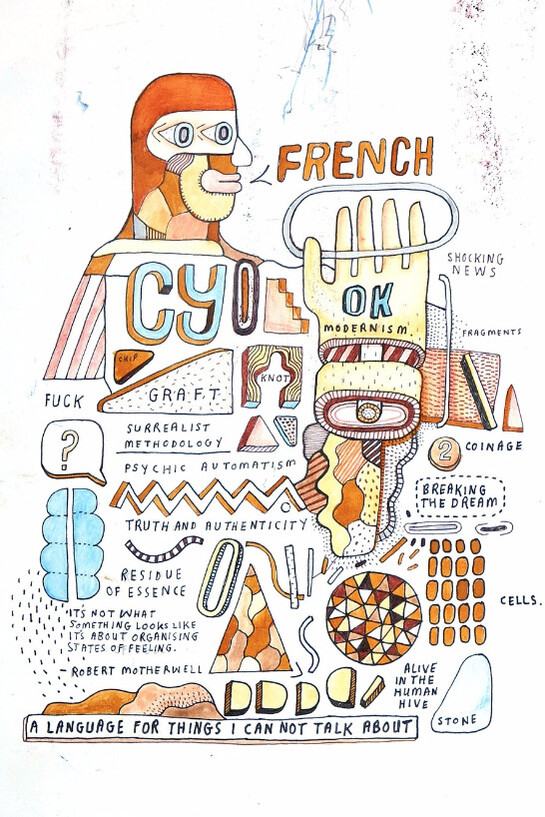 FRENCH
CYO
OK
MODERNISM.
SHOCKING
NEWS
FRAGMENTS
CHIP
KNOT
GRAFT
FUCK
SURREALIST
METHODOLOGY
?
2 COINAGE
PSYCHIC AUTOMATISM
BREAKING
THE DREAM
TRUTH AND AUTHENTICITY
RESIDUE
OF ESSENCE
CELLS.
IT'S NOT WHAT
SOMETHING LOOKS LIKE
IT'S ABOUT ORGANISING
STATES OF FEELING.
- ROBERT MOTHERWELL
ALIVE
IN THE
HUMAN
HIVE
STONE
A LANGUAGE FOR THINGS I CAN NOT TALK ABOUT